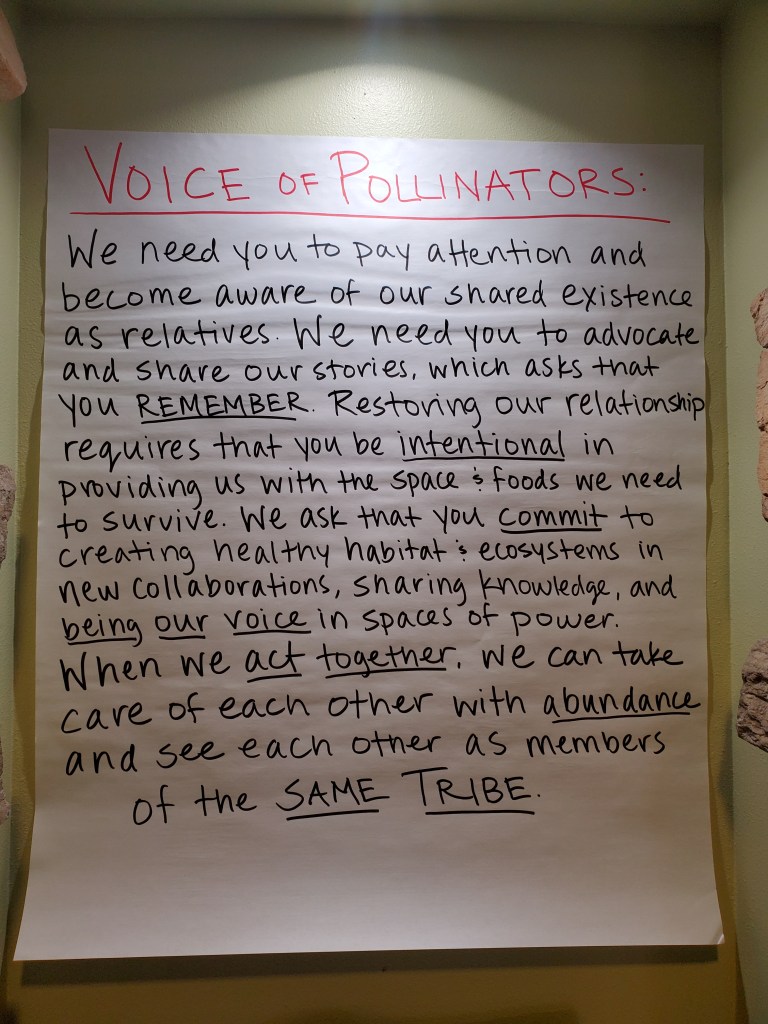 VOICE OF POLLINATORS:
We need you to pay attention and
become aware of our shared existence
as relatives. We need you to advocate
and share our stories, which asks that
you REMEMBER. Restoring our relationship
requires that you be intentional in
providing us with the space & foods we need
to survive. We ask that you commit to
creating healthy habitat & ecosystems in
new collaborations, sharing knowledge, and
being our voice in spaces of power.
When we act together, we can take
care of each other with abundance
and see each other as members
of the SAME TRIBE.